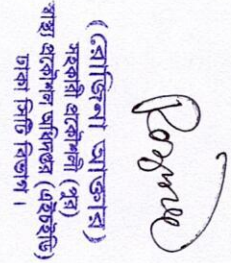 ( রোজিনা আক্তার )
সহকারী প্রকৌশলী (পুর)
স্বাস্থ্য প্রকৌশল অধিদপ্তর (এইচইডি)
ঢাকা সিটি বিভাগ ।